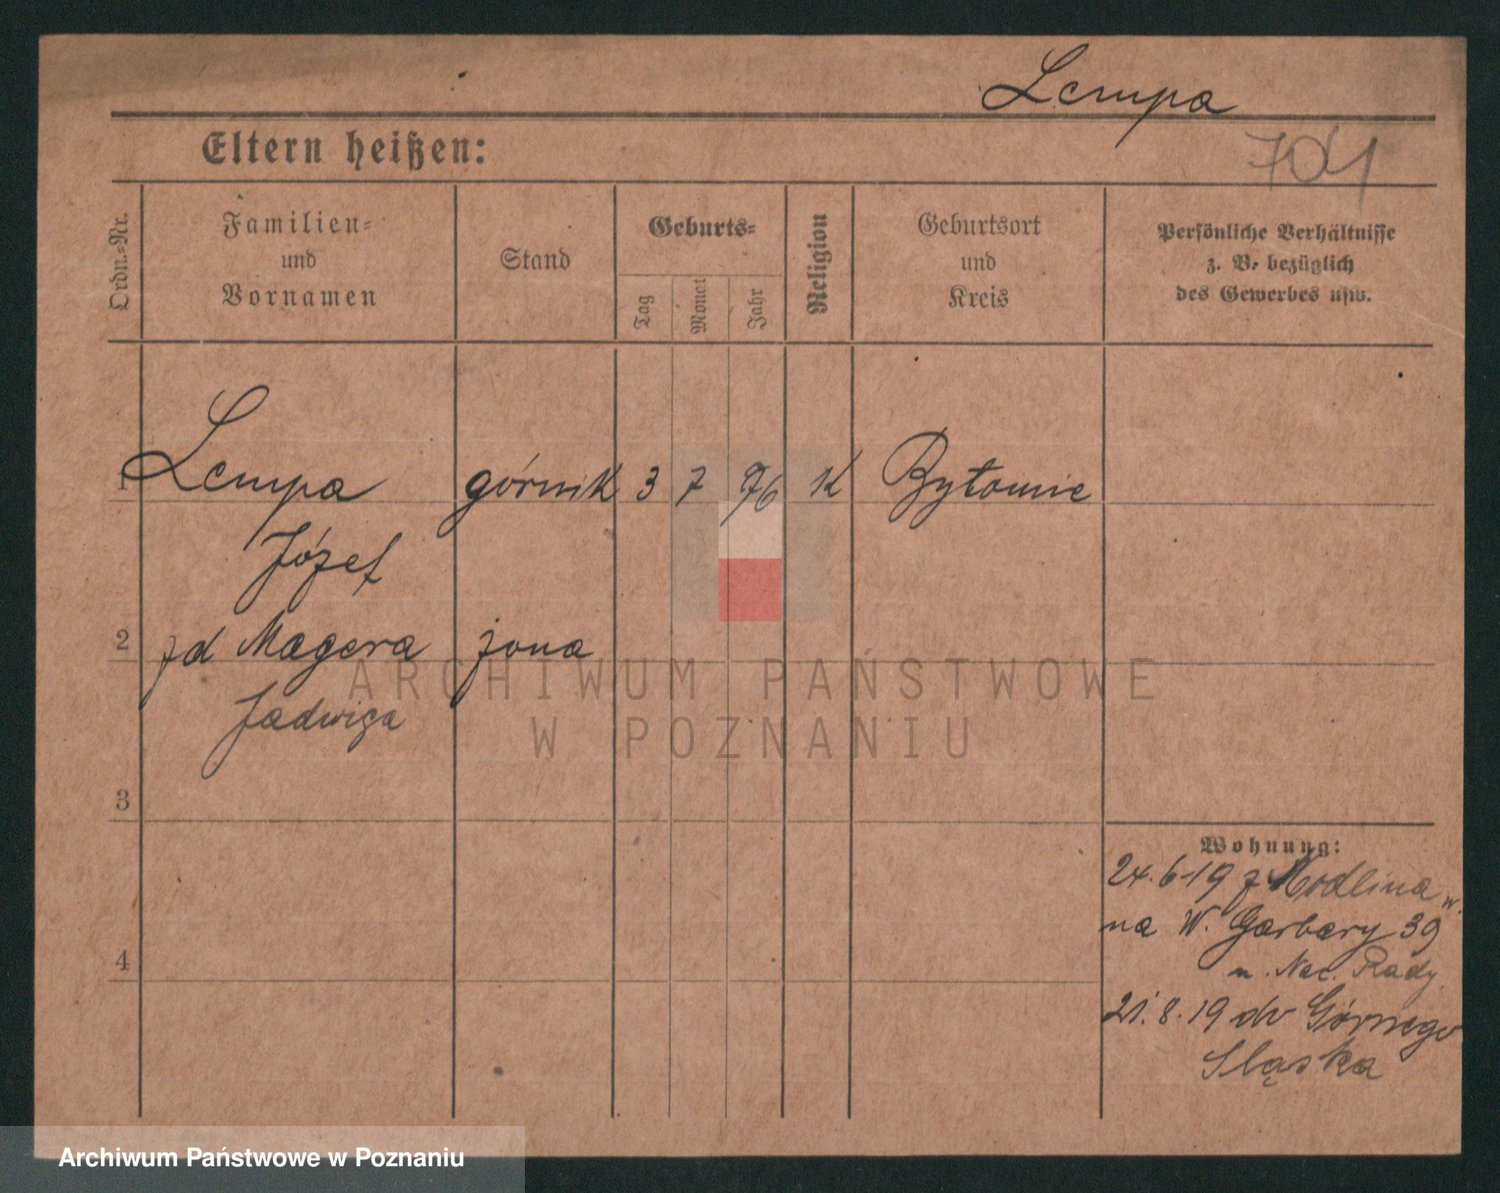 Lempa
Eltern heißen:
704
Ordn.-Nr.
Familien-
und
Vornamen
Stand
Geburts-
Tag
Monat
Jahr
Religion
Geburtsort
und
Kreis
Persönliche Verhältnisse
z. B. bezüglich
des Gewerbes usw.
1 Lempa górnik 3 7 76 K Bytomie
Józef
2 zd Magera żona
Jadwiga
3
4
Wohnung:
24.6.19 z Modlina
na W. Garbary 39
n. Nac. Rady
21.8.19 do Górnego
Śląska
ARCHIWUM PAŃSTWOWE
W POZNANIU
Archiwum Państwowe w Poznaniu